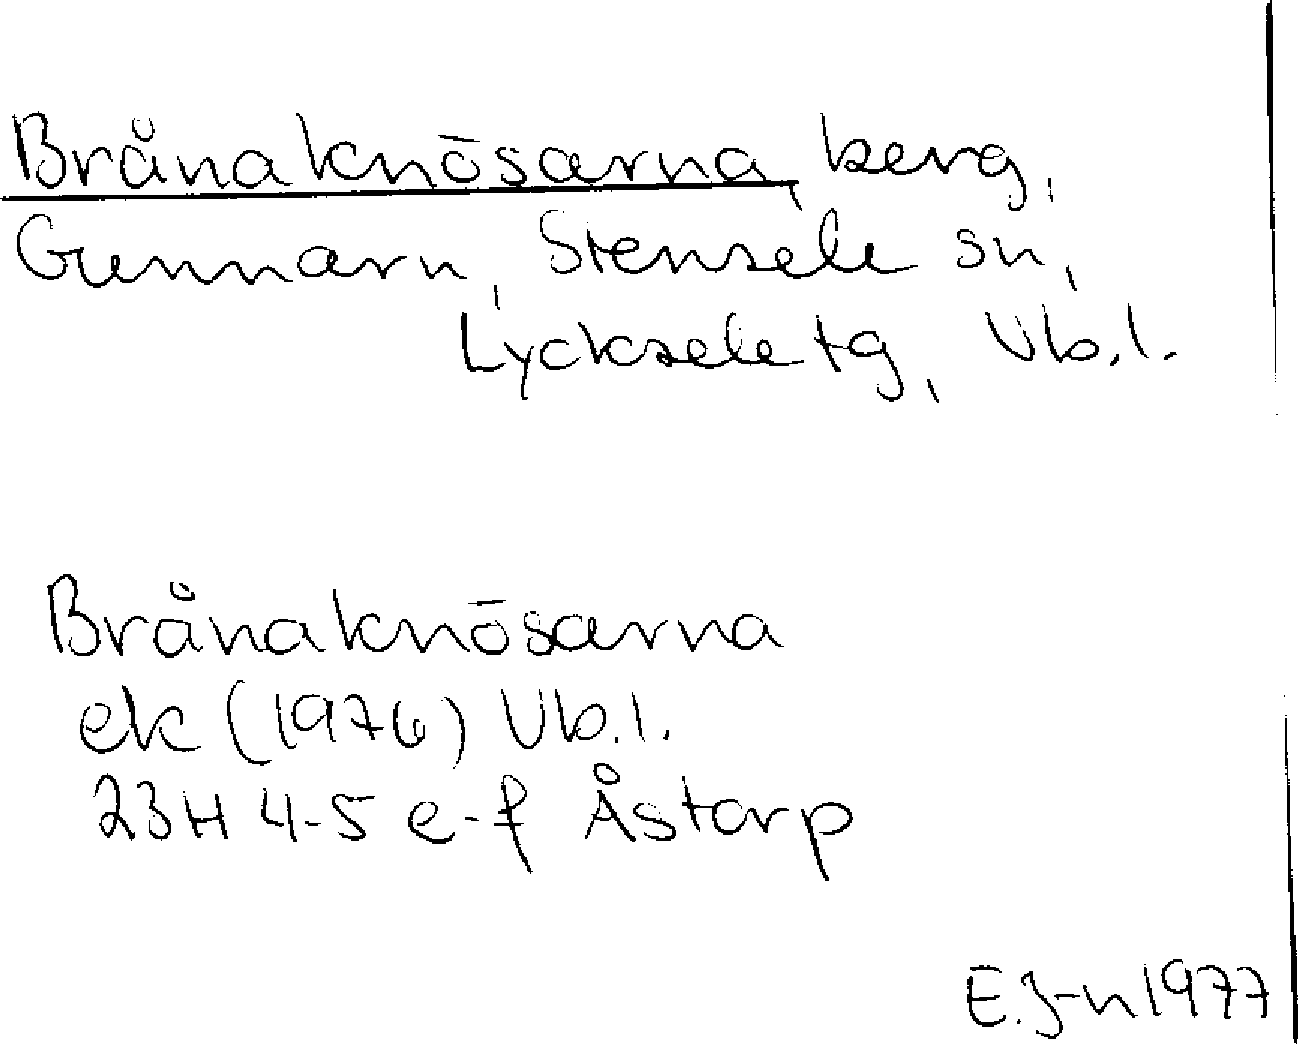 Brånaknösarna, berg,
Gunnarn, Stensele sn,
Lycksele tg, Vb.l.
Brånaknösarna
ek (1976) Vb.l.
23H 4-5 e-f Åstorp
E.J-n 1977